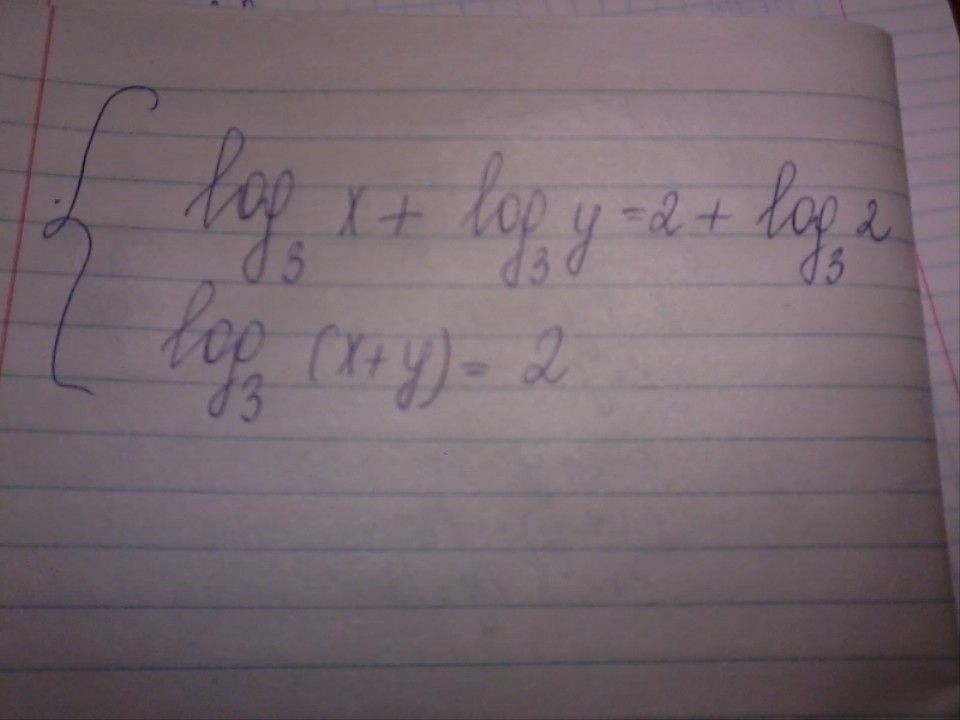 log₃ x + log₃ y = 2 + log₃ 2
log₃ (x+y) = 2